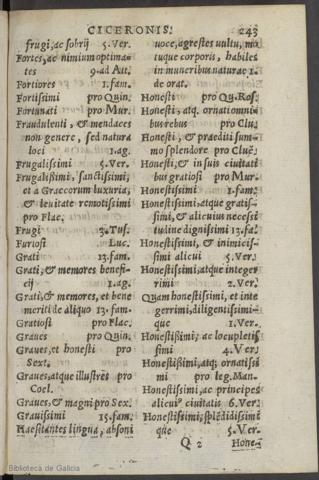 CICERONIS. 243
frugi, ac sobrij 5. Ver.
Fortes, ac nimium optima-
tes 9. ad Att.
Fortiores 1. fam.
Fortissimi pro Quin.
Fortunati pro Mur.
Fraudulenti, & mendaces
non genere, sed natura
loci 1. ag.
Frugalissimi 5. Ver.
Frugalissimi, sanctissimi,
et a Graecorum luxuria,
& leuitate remotissimi
pro Flac.
Frugi 3. Tus.
Furiosi Luc.
Grati 13. fam.
Grati, & memores benefi-
cij 1. ag.
Grati, & memores, et bene
meriti de aliquo 13. fam.
Gratiosi pro Flac.
Graues pro Quin.
Graues, et honesti pro
Sext.
Graues, atque illustres pro
Coel.
Graues, & magni pro Sex.
Grauissimi 15. fam.
Haesitantes lingua, absoni
uoce, agrestes uultu, mo
tuque corporis, habiles
in muneribus naturae 1.
de orat.
Honesti pro Qu. Ros.
Honesti, atq. ornati omni-
bus rebus pro Clu.
Honesti, & praediti sum-
mo splendore pro Clue.
Honesti, & in suis ciuitati
bus gratiosi pro Mur.
Honestissimi 1. fam.
Honestissimi, atque gratis-
simi, & alicuius necessi
tudine dignissimi 13. fa.
Honestissimi, & inimicis-
simi alicui 5. Ver.
Honestissimi, atque integer
rimi 2. Ver.
Quam honestissimi, et inte
gerrimi, diligentissimi-
que 1. Ver.
Honestissimi, ac locupletis
simi 4. Ver.
Honestissimi, atq; ornatissi
mi pro leg. Man.
Honestissimi, ac principes
alicuius ciuitatis 6. Ver.
Honestissimi, splēdidissimi
que 5. Ver.
Q 2 Hone-
Biblioteca de Galicia